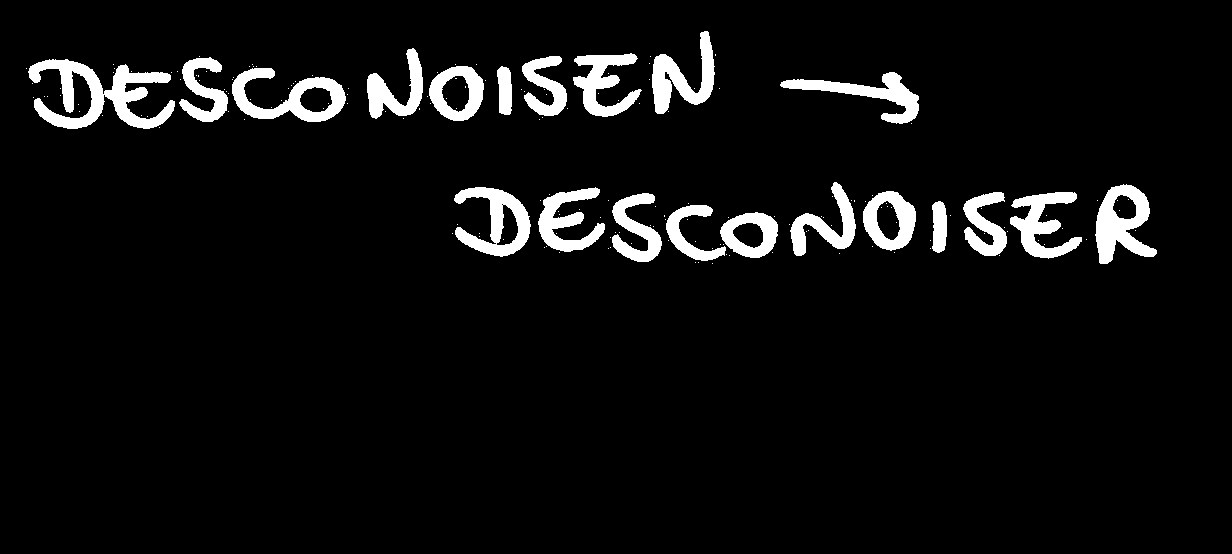 DESCONOISEN →
DESCONOISER